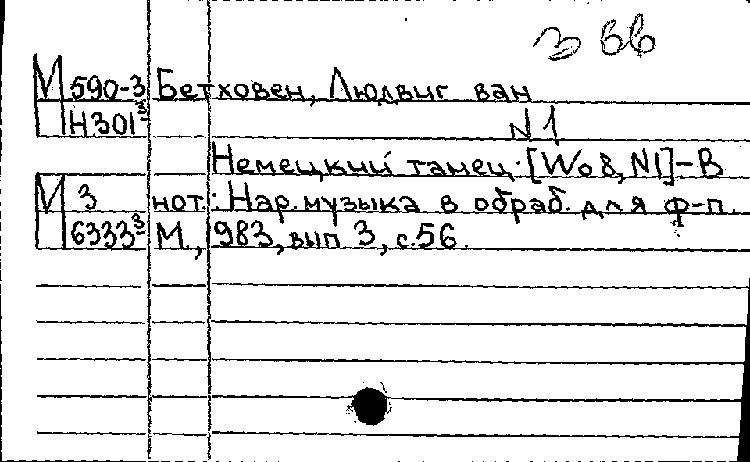 3 ВВ
М 590-3 Бетховен, Людвиг ван
Н301³ N 1
Немецкий танец: [Wo 8, N1]-В
М 3 нот.: Нар. музыка в обраб. для ф-п.
6333³ М., 1983, вып 3, с.56.